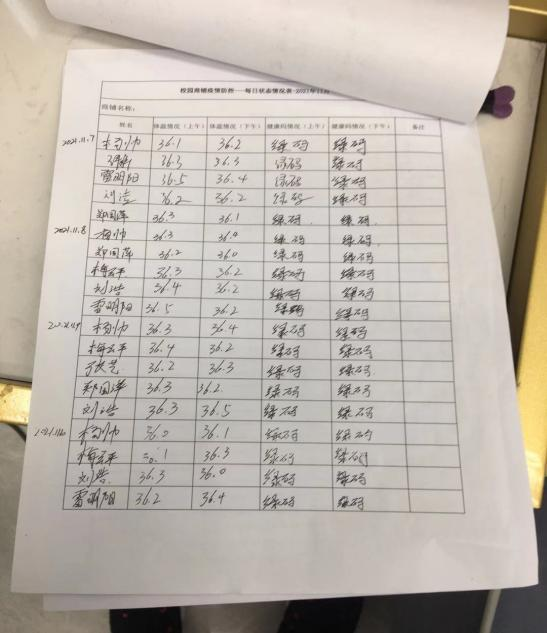 校园商铺疫情防控——每日状态情况表 2021年11月
商铺名称：
姓名 体温情况（上午） 体温情况（下午） 健康码情况（上午） 健康码情况（下午） 备注
2021.11.7 杨帅 36.1 36.2 绿码 绿码
36.3 36.3 绿码 绿码
雷明阳 36.5 36.4 绿码 绿码
刘浩 36.2 36.2 绿码 绿码
郑国萍 36.3 36.1 绿码 绿码
2021.11.8 杨帅 36.3 36.4 绿码 绿码
郑国萍 36.2 36.0 绿码 绿码
梅云平 36.3 36.2 绿码 绿码
刘浩 36.4 36.2 绿码 绿码
雷明阳 36.5 36.2 绿码 绿码
2021.11.9 杨帅 36.3 36.4 绿码 绿码
梅云平 36.4 36.2 绿码 绿码
36.2 36.3 绿码 绿码
郑国萍 36.3 36.2 绿码 绿码
刘浩 36.3 36.5 绿码 绿码
2021.11.10 杨帅 36.0 36.1 绿码 绿码
梅云平 36.3 绿码 绿码
刘浩 36.3 36.0 绿码 绿码
雷明阳 36.2 36.4 绿码 绿码